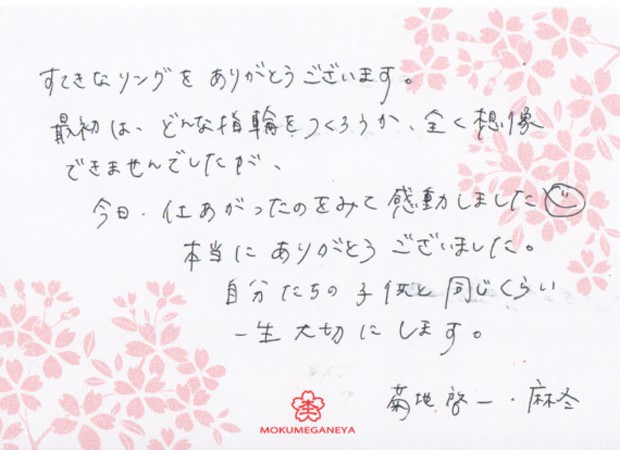 すてきなリングを ありがとうございます。
最初は、どんな指輪をつくろうか、全く想像
できませんでしたが、
今日、仕あがったのをみて 感動しました
本当に ありがとう ございました。
自分たちの子供と 同じくらい
一生 大切に します。
菊地 啓一・麻
MOKUMEGANEYA